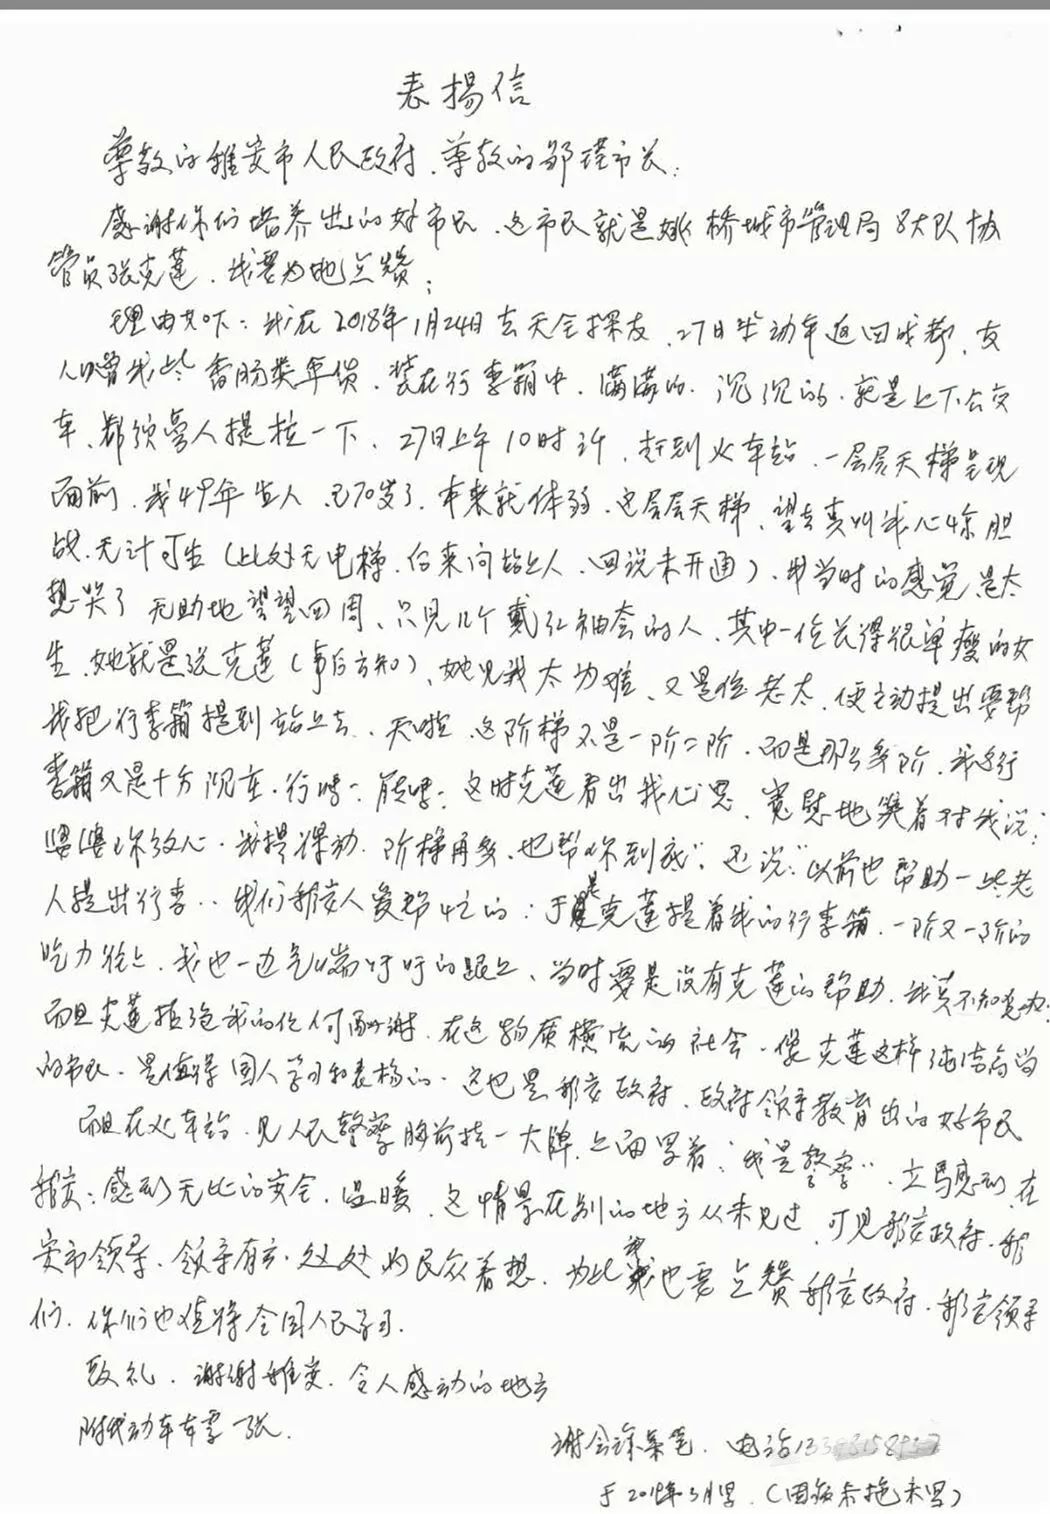 表揚信
尊敬的雅安市人民政府、尊敬的邹瑾市长：
感谢你们培养出的好市民、这市民就是姚桥城市管理局8大队协
管员张克莲、我要为她点赞：
理由如下：我在2018年1月24日去天全探友、27日坐动车返回成都、友
人赠我些香肠类年货、装在行李箱中、满满的、沉沉的、就是上下公交
车、都须旁人提拉一下、27日上午10时许、赶到火车站、一层层天梯呈现
面前、我49年生人、已70岁了、本来就体弱、这层层天梯、望去真叫我心惊胆
战、无计可生（此处无电梯、后来问站上人、回说未开通）、我当时的感觉是太
想哭了 无助地望望四周、只见几个戴红袖套的人、其中一位长得很单瘦的女
生、她就是张克莲（事后方知）、她见我太为难、又是位老太、便主动提出要帮
我把行李箱提到站上去、天啦、这阶梯不是一阶二阶、而是那么多阶、我的行
李箱又是十分沉重、行吗？能吗？这时克莲看出我心思、宽慰地笑着对我说：
婆婆你放心、我提得动、阶梯再多、也帮你到底”、还说：“以前也帮助一些老
人提出行李、我们雅安人爱帮忙的：于是克莲提着我的行李箱、一阶又一阶的
吃力往上、我也一边气喘吁吁的跟上、当时要是没有克莲的帮助、我真不知怎办：
而且克莲拒绝我的任何酬谢、在这物质横流的社会、像克莲这样纯洁高尚
的市民、是值得国人学习和表扬的、这也是雅安政府、政府领导教育出的好市民
而且在火车站、见人民警察胸前挂一大牌、上面写着：“我是警察”、立马感到在
雅安：感到无比的安全、温暖、这情景在别的地方从未见过、可见雅安政府、雅
安市领导、领导有方、处处为民众着想、为此我也要点赞雅安政府、雅安领导
们、你们也值得全国人民学习、
致礼、谢谢雅安、令人感动的地方
附我动车车票一张、
谢会涂亲笔、电话133
于2018年3月写、（因病未拖未写）